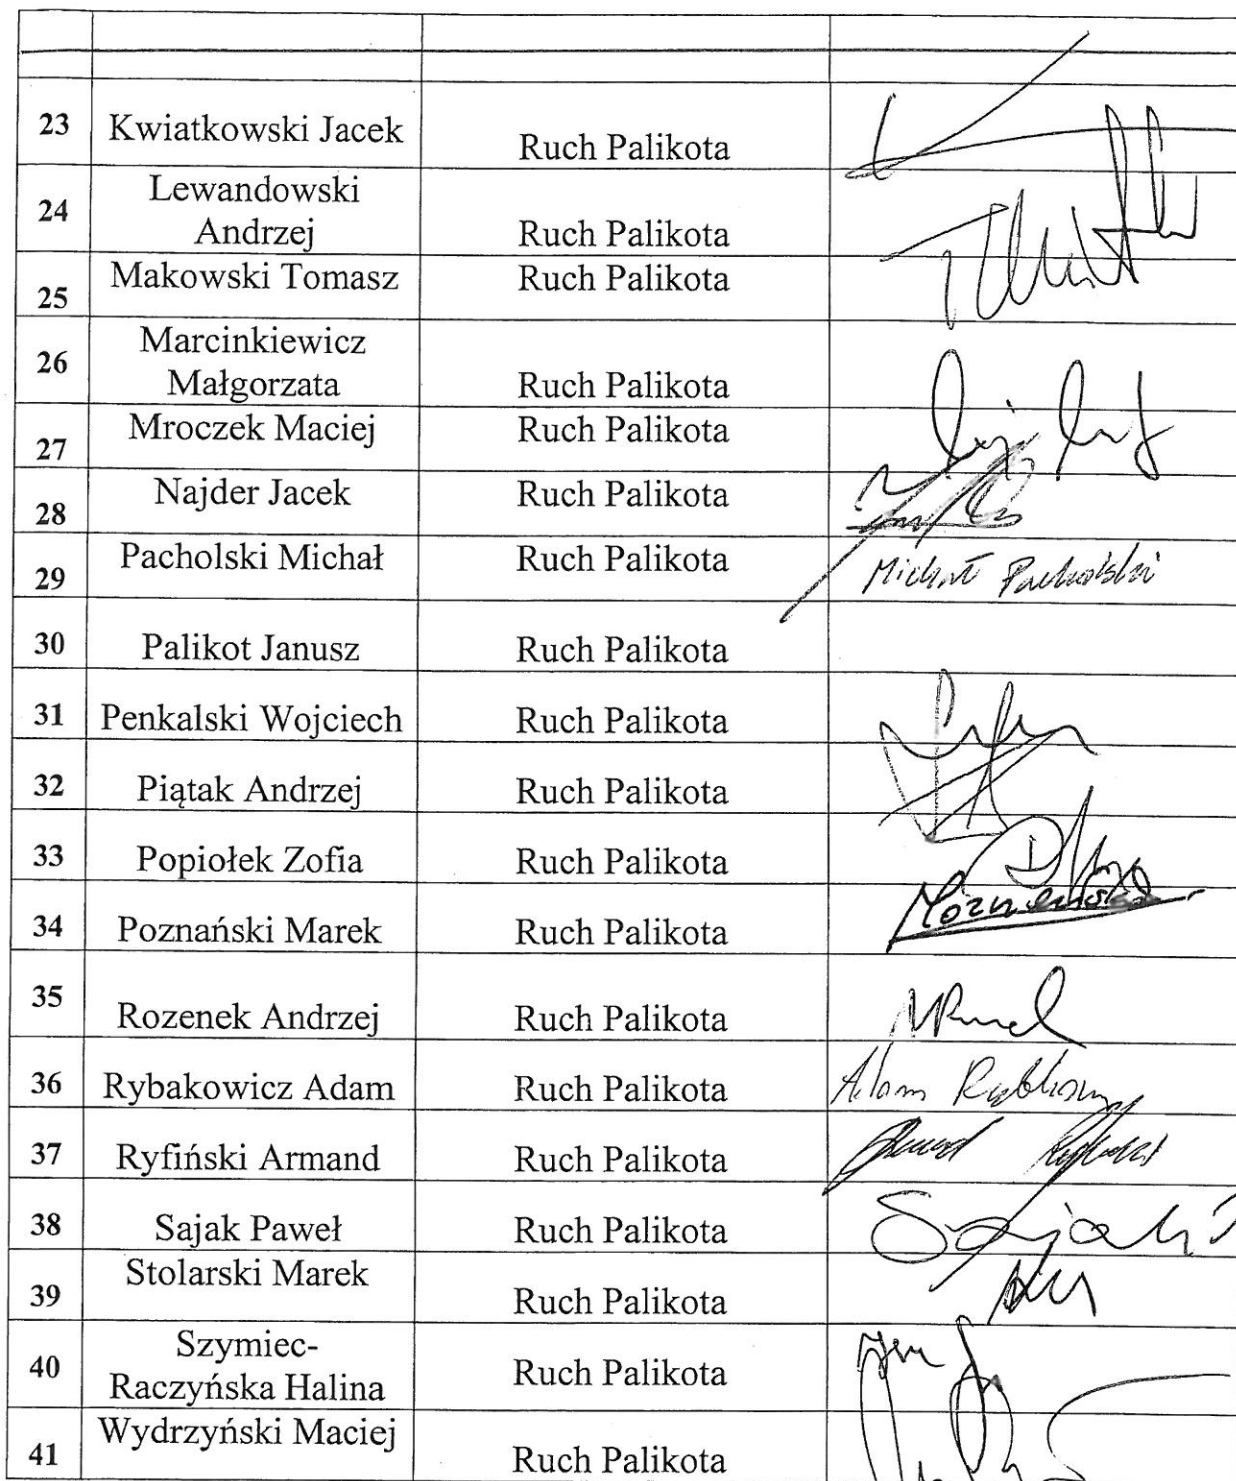 23 Kwiatkowski Jacek Ruch Palikota
24 Lewandowski
Andrzej Ruch Palikota
25 Makowski Tomasz Ruch Palikota
26 Marcinkiewicz
Małgorzata Ruch Palikota
27 Mroczek Maciej Ruch Palikota
28 Najder Jacek Ruch Palikota
29 Pacholski Michał Ruch Palikota Michał Pacholski
30 Palikot Janusz Ruch Palikota
31 Penkalski Wojciech Ruch Palikota
32 Piątak Andrzej Ruch Palikota
33 Popiołek Zofia Ruch Palikota
34 Poznański Marek Ruch Palikota
35 Rozenek Andrzej Ruch Palikota
36 Rybakowicz Adam Ruch Palikota Adam
37 Ryfiński Armand Ruch Palikota
38 Sajak Paweł Ruch Palikota Sajak
39 Stolarski Marek Ruch Palikota
40 Szymiec-
Raczyńska Halina Ruch Palikota
41 Wydrzyński Maciej Ruch Palikota